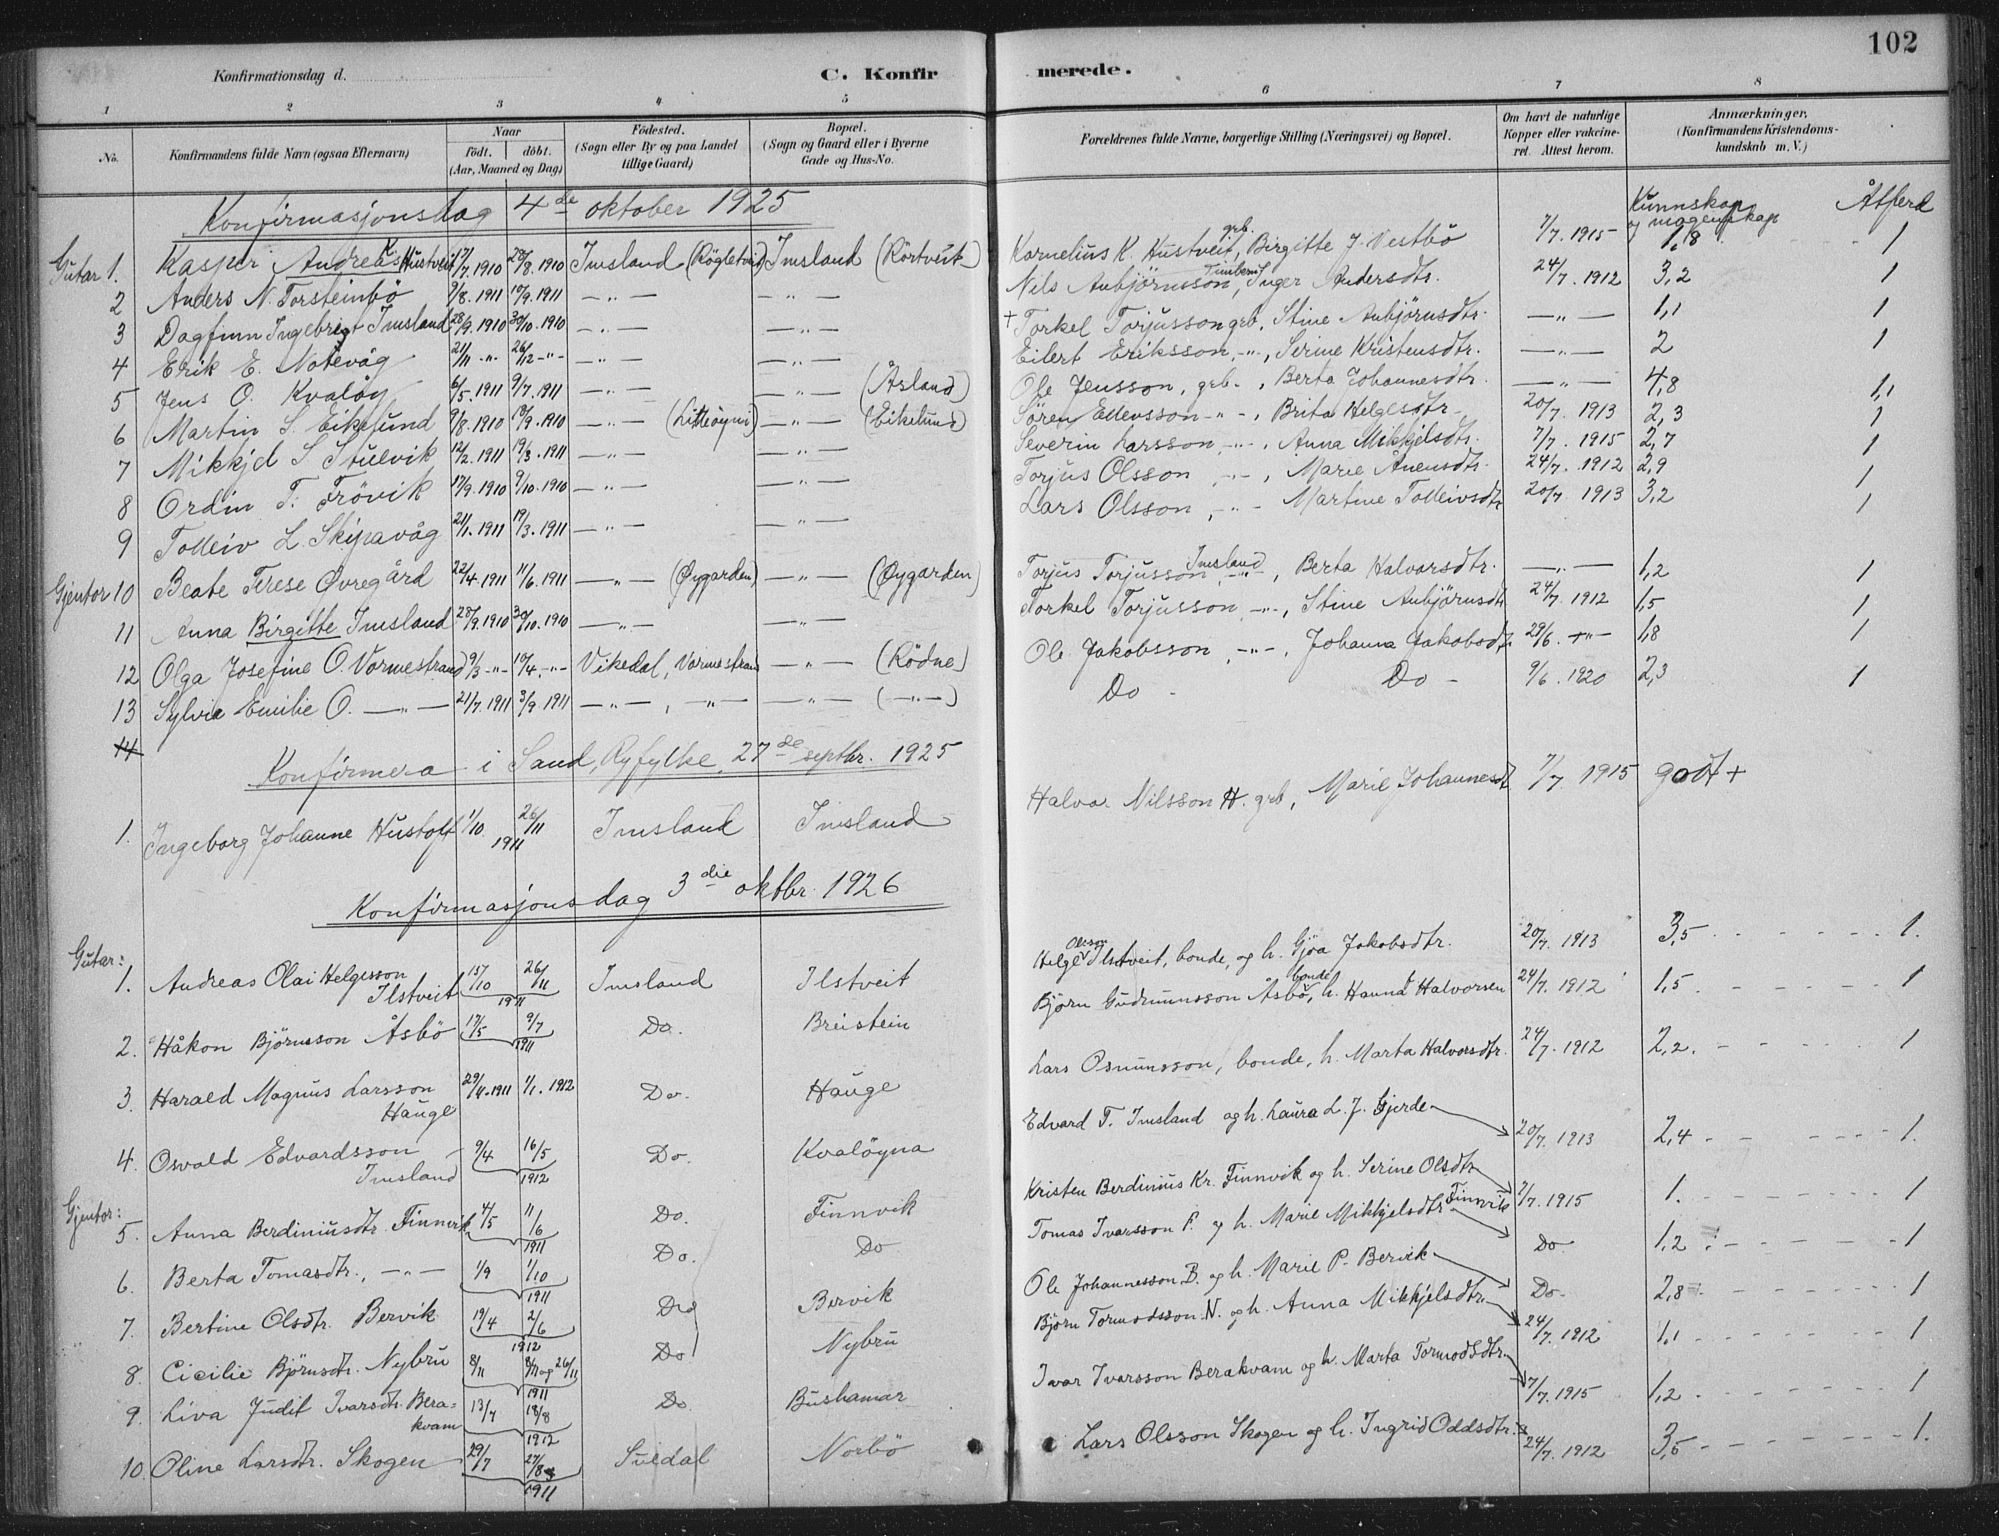 102
Konfirmationsdag d.
C. Konfirmerede.
1 2 3 4 5 6 7 8
No. Konfirmandens fulde Navn (ogsaa Efternavn) Naar födt. döbt. (Aar, Maaned og Dag) Födested. (Sogn eller By og paa Landet tillige Gaard) Bopæl. (Sogn og Gaard eller i Byerne Gade og Hus-No. Forældrenes fulde Navne, borgerlige Stilling (Næringsvei) og Bopæl. Om havt de naturlige Kopper eller vakcineret. Attest herom. Anmærkninger, (Konfirmandens Kristendomskundskab m. V.)
Konfirmasjonsdag 4de oktober 1925 Kunnskap og mogenskap Åtferd
Gutar 1. Kasper Andreas K Hustveit 17/7.1910 28/8.1910 Imsland Imsland (Rörtveit) Kornelius K. Hustveit, grb. Birgitte J. Vestbö 7/7.1915 1,8 1
2 Anders N. Torsteinbö 9/8.1911 10/9.1911 —"— —"— Nils Aubjörnsson, Inger Andersdtr. 24/7.1912 3,2 1
3 Dagfinn Ingebrigt Imsland 28/9.1910 30/10.1910 —"— —"— + Torkel Torjusson grb, Stine Aubjörnsdtr. —"— 1,1 1
4 Erik E. Notevåg 21/11 -"- 26/12 -"- —"— —"— Eilert Eriksson, -"-, Serine Kristensdtr. —"— 2 1
5 Jens O. Kvaløy 6/5.1911 9/7.1911 —"— —"— (Årland) Ole Jensson, grb-, Berta Johannesdtr. —"— 4,8 1,1
6 Martin S. Eikelund 9/8 1910 18/9.1910 —"— (Litleöyni) —"— (Eikelund) Sören Ellevsson -"-, Brita Helgesdtr- 20/7.1913 2,3 1
7 Mikkjel S Stulvik 12/2.1911 19/3.1911 —"— —"— Severin Larsson, -"-, Anna Mikkjelsdtr. 7/7.1915 2,7 1
8 Ordin T. Frövik 17/9.1910 9/10.1910 —"— —"— Torjus Olsson, -"-, Marie Ånensdtr. 24/7.1912 2,9 1
9 Tolleiv L. Skipavåg 21/1.1911 19/3.1911 —"— —"— Lars Olsson, -"- Martine Tolleivsdtr 20/7 1913 3,2 1
Gjentor 10 Beate Terese Øvregård 22/4.1911 11/6.1911 —"— (Øygarden) —"— (Øygarden) Torjus Torjusson Imsland -"-, Berta Halvorsdtr. —"— 1,2 1
11 Anna Birgitte Imsland 28/9.1910 30/10.1910 —"— —"— Torkel Torjusson, -"-, Stine Aubjörnsdtr 24/7.1912 1,5 1
12 Olga Josefine O. Vormestrand 9/3 -"- 17/4 -"- Vikedal, Vormestrand —"— (Rödne) Ole Jakobsson, -"-, Johanna Jakobsdtr 29/6. -"- 1,8 1
13 Sylvia Emilie O. —"— 21/7.1911 3/9.1911 —"—, —"— —"— (—"—) Do - Do - 9/6.1920 2,3 1
14
Konfirmera i Sand, Ryfylke, 27de septbr. 1925
1. Ingeborg Johanne Hustoft 1/10 26/11 1911 Imsland Imsland Halvor Nilsson H. grb, Marie Johannesdt 7/7 1915 godt +
Konfirmasjonsdag 3die oktbr. 1926
Gutar:
1. Andreas Olai Helgesson Ilstveit 15/10 26/11 1911 Imsland Ilstveit Helge Olsson Ilstveit, bonde, og h. Gjøa Jakobsdtr. 20/7.1913 3,5 1.
2. Håkon Björnsson Åsbö 17/5 9/7 1911 Do. Breistein Björn Gudmunsson Åsbö, bonde h. Hanna Halvorsen 24/7.1912 1,5 1
3. Harald Magnus Larsson Hauge 29/4.1911 1/1.1912 Do. Hauge Lars Osmunsson, bonde, h. Marta Halvorsdtr. 24/7.1912 2,2. 1
4. Osvald Edvardsson Imsland 9/4 16/5 1912 Do. Kvalöyna Edvard T. Imsland og h. Laura L. J. Gjerde 20/7.1913 2,4 1.
Gjentor:
5. Anna Berdiniusdtr. Finnvik 4/5 11/6 1911 Do. Finnvik Kristen Berdinius Kr. Finnvik og h. Serine Olsdtr 7/7.1915 1. 1
6. Berta Tomasdtr., —"— 1/9 1/10 1911 Do. Do Tomas Ivarsson F. og h. Marie Mikkjelsdtr Finnvik Do. 1,2 1
7. Bertine Olsdtr. Bervik 19/4 2/6 1912 Do Bervik Ole Johannesson B. og h. Marie P. Bervik Do- 2,8 1
8. Cicilie Björnsdtr. Nybru 8/11 8/11 og 26/11 1911 Do Nybru Björn Tormodsson N. og h. Anna Mikkjelsdtr. 24/7.1912 1,1 1
9. Liva Judit Ivarsdtr. Berakvam 13/7 18/8 1912 Do. Bushamar Ivar Ivarsson Berakvam og h. Marta Tormodsdtr. 7/7.1915 1,2 1
10. Oline Larsdtr. Skogen 29/7 27/8 1911 Suldal Norbö Lars Olsson Skogen og h. Ingrid Oddsdtr. 24/7.1912 3,5 1.